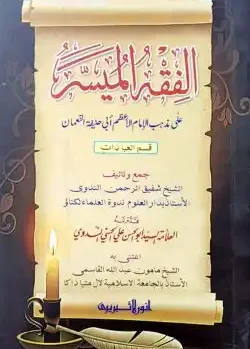 الفقه الميسر
على مذهب الإمام الأعظم أبي حنيفة النعمان
قسم العبادات
جمع وتأليف
الشيخ شفيق الرحمن الندوي
الأستاذ بدار العلوم ندوة العلماء لكناؤ
قدم له
العلامة السيد أبو الحسن علي الحسني الندوي
اعتنى به
الشيخ مأمون عبد الله القاسمي
الأستاذ بالجامعة الاسلامية لال متيا داكا
انور لائبريري